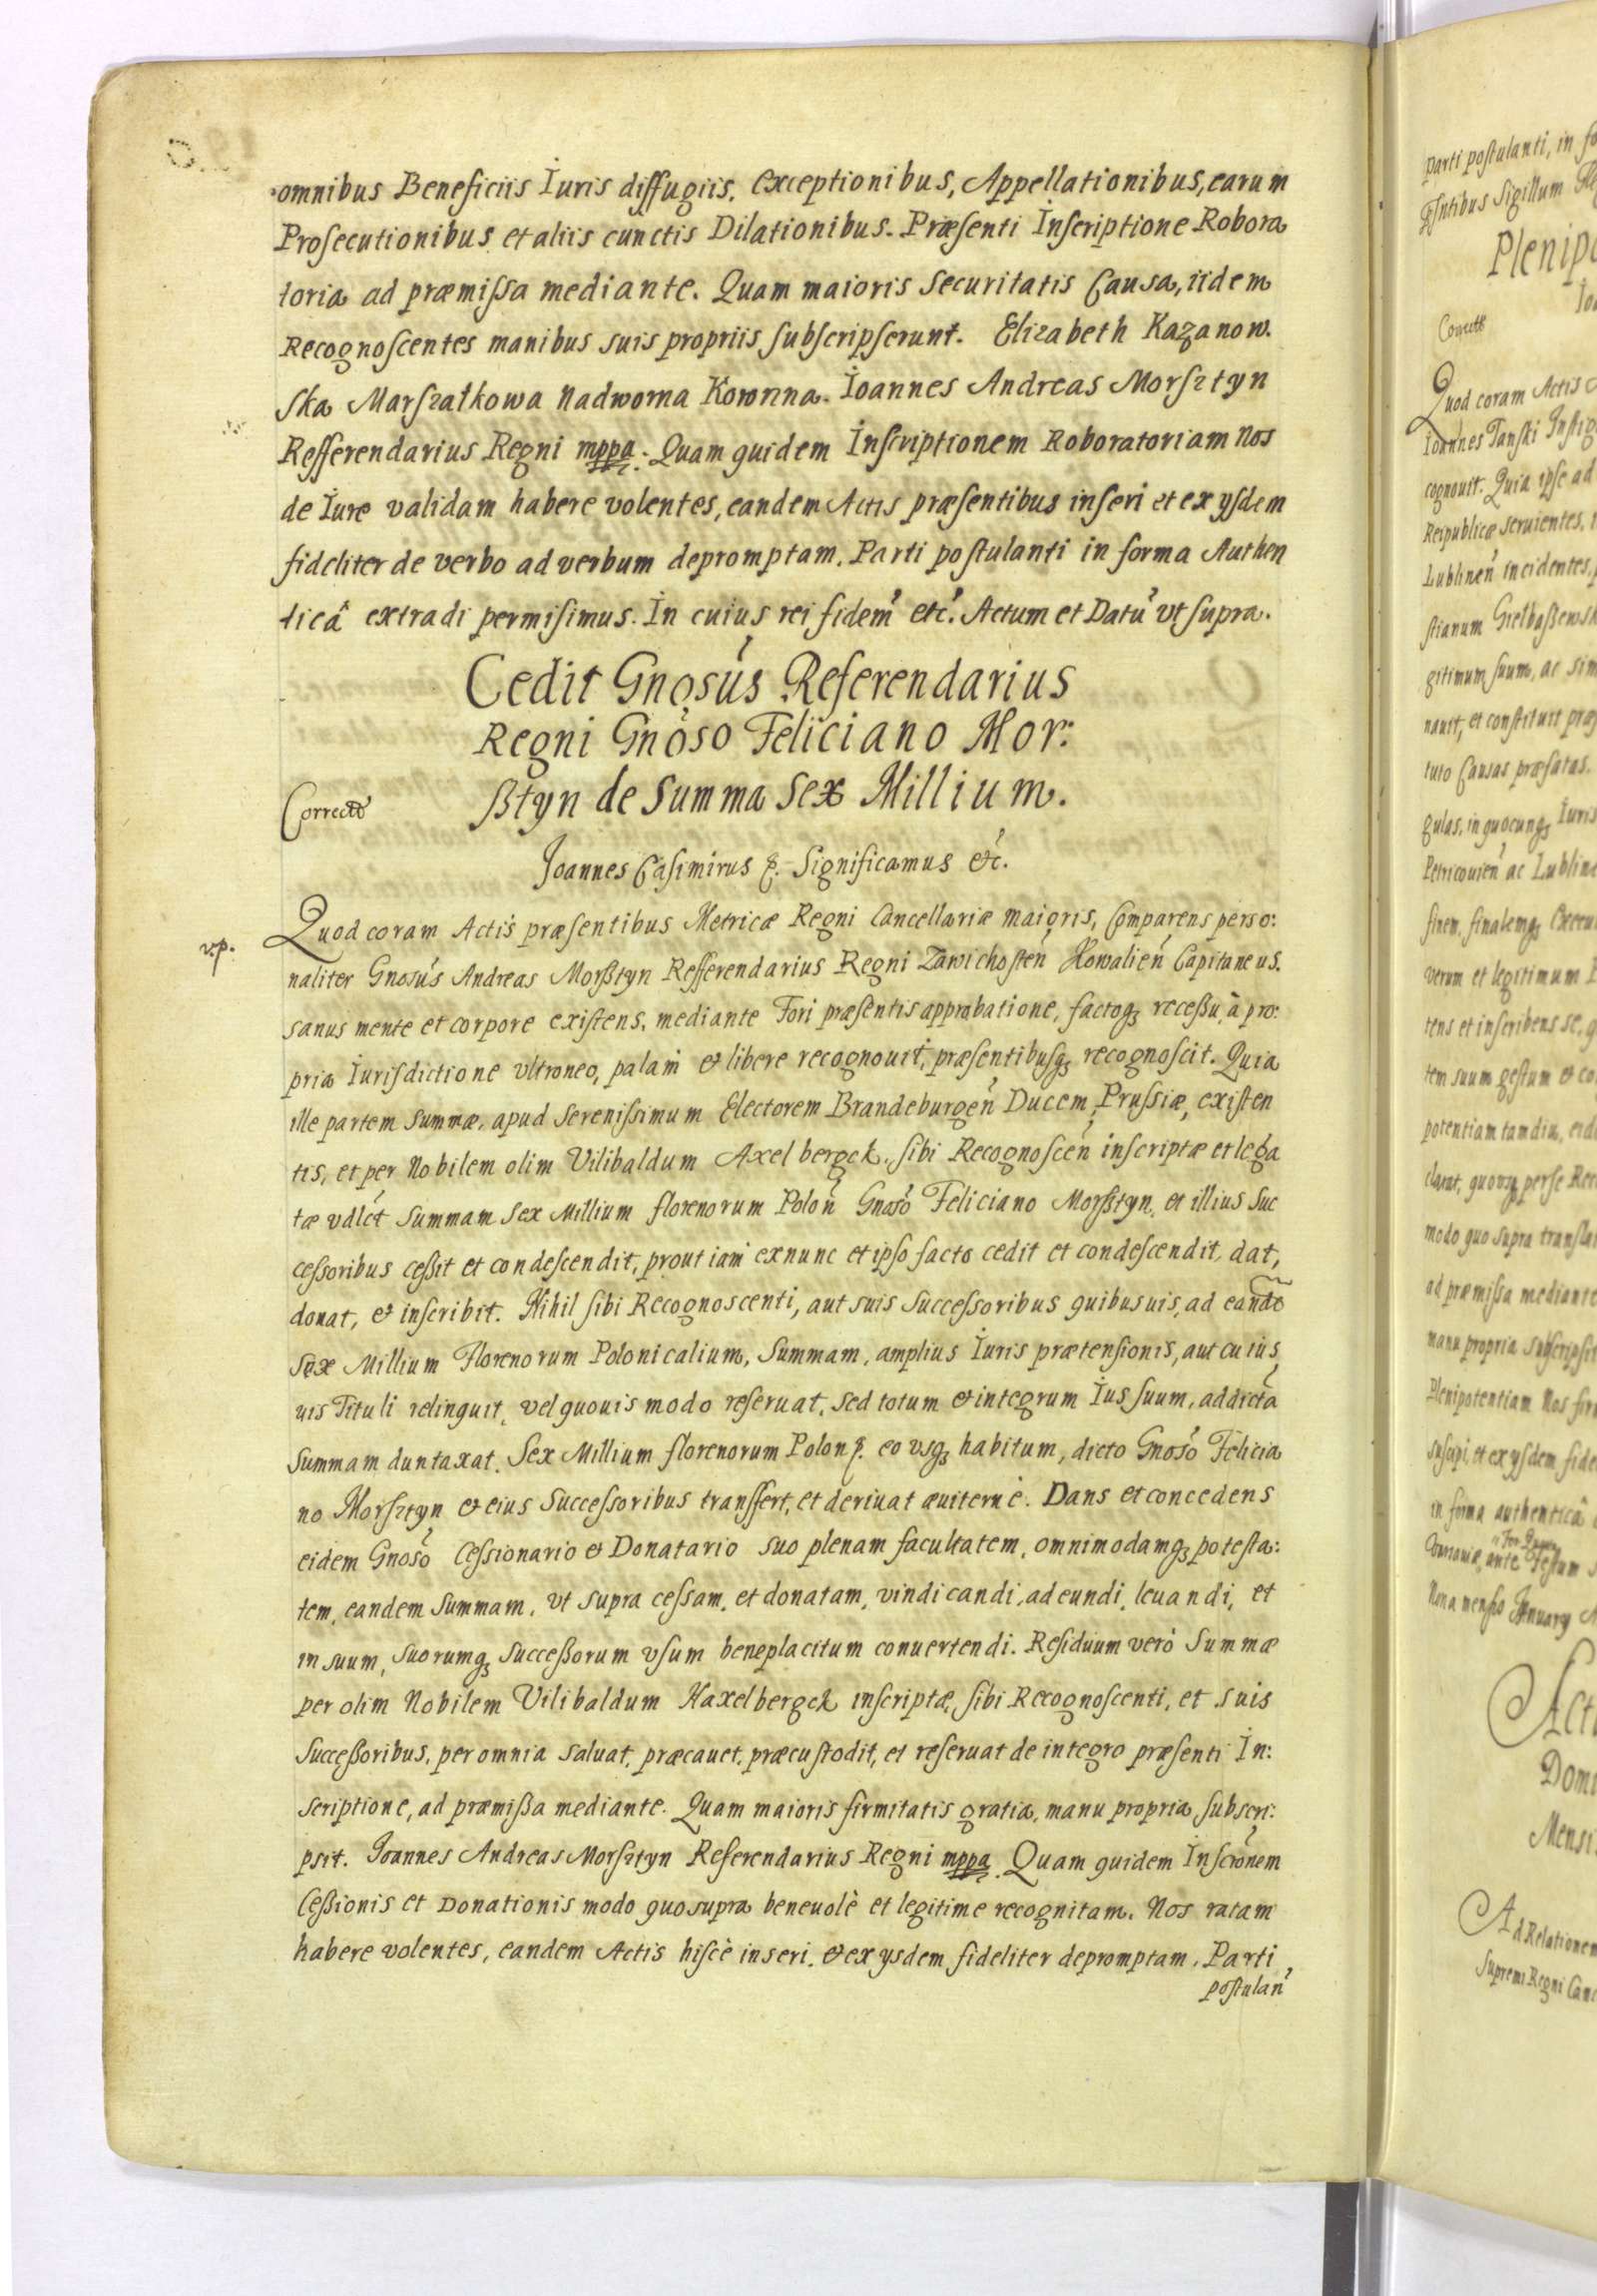 omnibus Beneficiis Iuris diffugiis, exceptionibus, Appellationibus, earum
Prosecutionibus et aliis cunctis Dilationibus. Præsenti Inscriptione Robora
toria ad præmissa mediante. Quam maioris securitatis Causa, iidem
Recognoscentes manibus suis propriis subscripserunt. Elizabeth Kazanow.
ska Marszałkowa Nadworna Koronna. Ioannes Andreas Morsztyn
Refferendarius Regni mppa. Quam quidem Inscriptionem Roboratoriam Nos
de Iure validam habere volentes, eandem Actis præsentibus inseri et ex ysdem
fideliter de verbo ad verbum depromptam, Parti postulanti in forma Authen
ticâ extradi permisimus. In cuius rei fidem etc. Actum et Datũ vt supra.
Cedit Gnosus Referendarius
Regni Gnoso Feliciano Mor:
ßtyn de Summa Sex Millium.
Correcte
Joannes Casimirus &. Significamus &c.
Quod coram Actis præsentibus Metricæ Regni Cancellariæ maioris, Comparens perso:
v.p.
naliter Gnosus Andreas Morßtyn Refferendarius Regni Zawichosteñ Kowalieñ Capitaneus.
sanus mente et corpore existens, mediante Fori præsentis approbatione, factoq₃ recessu, à pro:
pria Iurisdictione vltroneo, palam & libere recognouit, præsentibusq₃ recognoscit. Quia
ille partem summæ, apud Serenissimum Electorem Brandeburgeñ Ducem Prussiæ, existen
tis, et per Nobilem olim Vilibaldum Axelbergek, sibi Recognosceñ inscriptæ et lega
tæ vdlct Summam Sex Millium florenorum Poloñ Gnoso Feliciano Morßtyn, et illius Suc
cessoribus cessit et condescendit, prout iam exnunc et ipso facto cedit et condescendit, dat,
donat, & inscribit. Nihil sibi Recognoscenti, aut suis Successoribus quibusuis, ad eande
sex Millium Florenorum Polonicalium, Summam, amplius Iuris prætensionis, aut cuius
uis Tituli relinquit, vel quouis modo reseruat, sed totum & integrum Ius suum, ad dictã
Summam duntaxat, Sex Millium florenorum Polon &. eo vsq₃ habitum, dicto Gnoso Felicia
no Morsztyn & eius Successoribus transfert, et deriuat æuiternè. Dans et concedens
eidem Gnoso Cessionario & Donatario suo plenam facultatem, omnimodamq₃ potesta:
tem, eandem Summam, vt supra cessam, et donatam, vindicandi, adeundi, leuandi, et
in suum, suorumq₃ Successorum vsum beneplacitum conuertendi. Residuum verò Summæ
per olim Nobilem Vilibaldum Haxelbergek inscriptæ, sibi Recognoscenti, et suis
Successoribus, per omnia saluat, præcauet, præcustodit, et reseruat de integro præsenti In:
scriptione, ad præmißa mediante. Quam maioris firmitatis gratia, manu propria, subscri:
psit. Joannes Andreas Morsztyn Referendarius Regni mppa Quam quidem Inscrionem
Cessionis et Donationis modo quo supra beneuolè et legitime recognitam. Nos ratam
habere volentes, eandem Actis hisce inseri, & ex ysdem fideliter depromptam, Parti
postulan
parti postulanti, in
Sigillum
Correcte
Quod coram Actis
Ioannes
cognouit. Quia ipse ad
Reipublicæ seruientes,
Lublineñ incidentes,
stianum
gitimum suum, ac
nauit, et constituit
tuto Causas præfatas,
gulas, in quocunq₃ Iuris
ac
finem, finalemq₃
verum et legitimum
tens et inscribens se,
tem suum gestum & 
potentiam tamdiu,
per se
modo quo supra
ad præmissa mediante
manu propria subscripsit
Plenipotentiam Nos
et ex ysdem
in forma authenticâ
ante Festum
Nona mensis January
Mensi
Ad Relationem
Supremi Regni